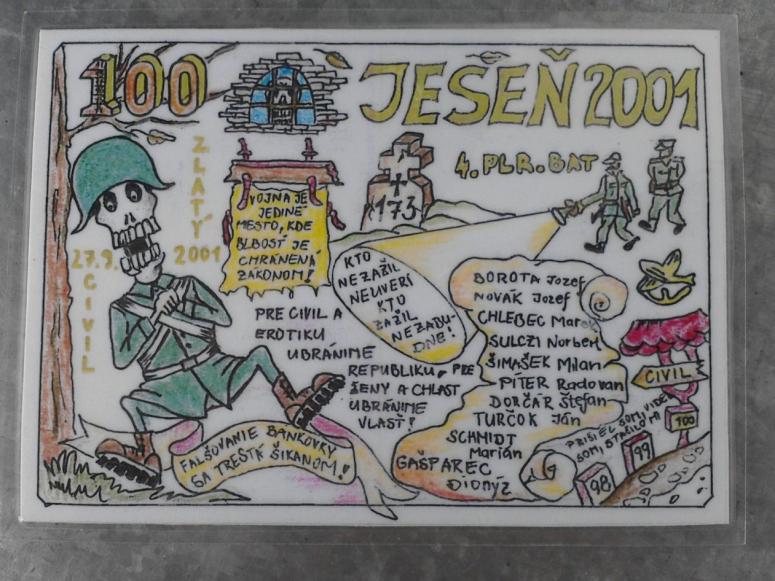 100
JESEŇ 2001
4. PLR. BAT
ZLATÝ
27.9. 2001
CIVIL
VOJNA JE
JEDINÉ
MESTO, KDE
BLBOSŤ JE
CHRÁNENÁ
ZÁKONOM!
173
KTO
NEZAŽIL
NEUVERÍ
KTO
ZAŽIL
NEZABU-
DNE!
PRE CIVIL A
EROTIKU
UBRÁNIME
REPUBLIKU, PRE
ŽENY A CHLAST
UBRÁNIME
VLASŤ!
BOROTA Jozef
NOVÁK Jozef
CHLEBEC Marek
SULCZI Norbert
ŠIMAŠEK Milan
PITER Radovan
DORČÁR Štefan
TURČOK Ján
SCHMIDT
Marián
GAŠPAREC
Dionýz
CIVIL
100
99
98
PRIŠIEL SOM, VIDEL
SOM, STAČILO MI
FALŠOVANIE BANKOVKY
SA TRESTÁ ŠIKANOM!